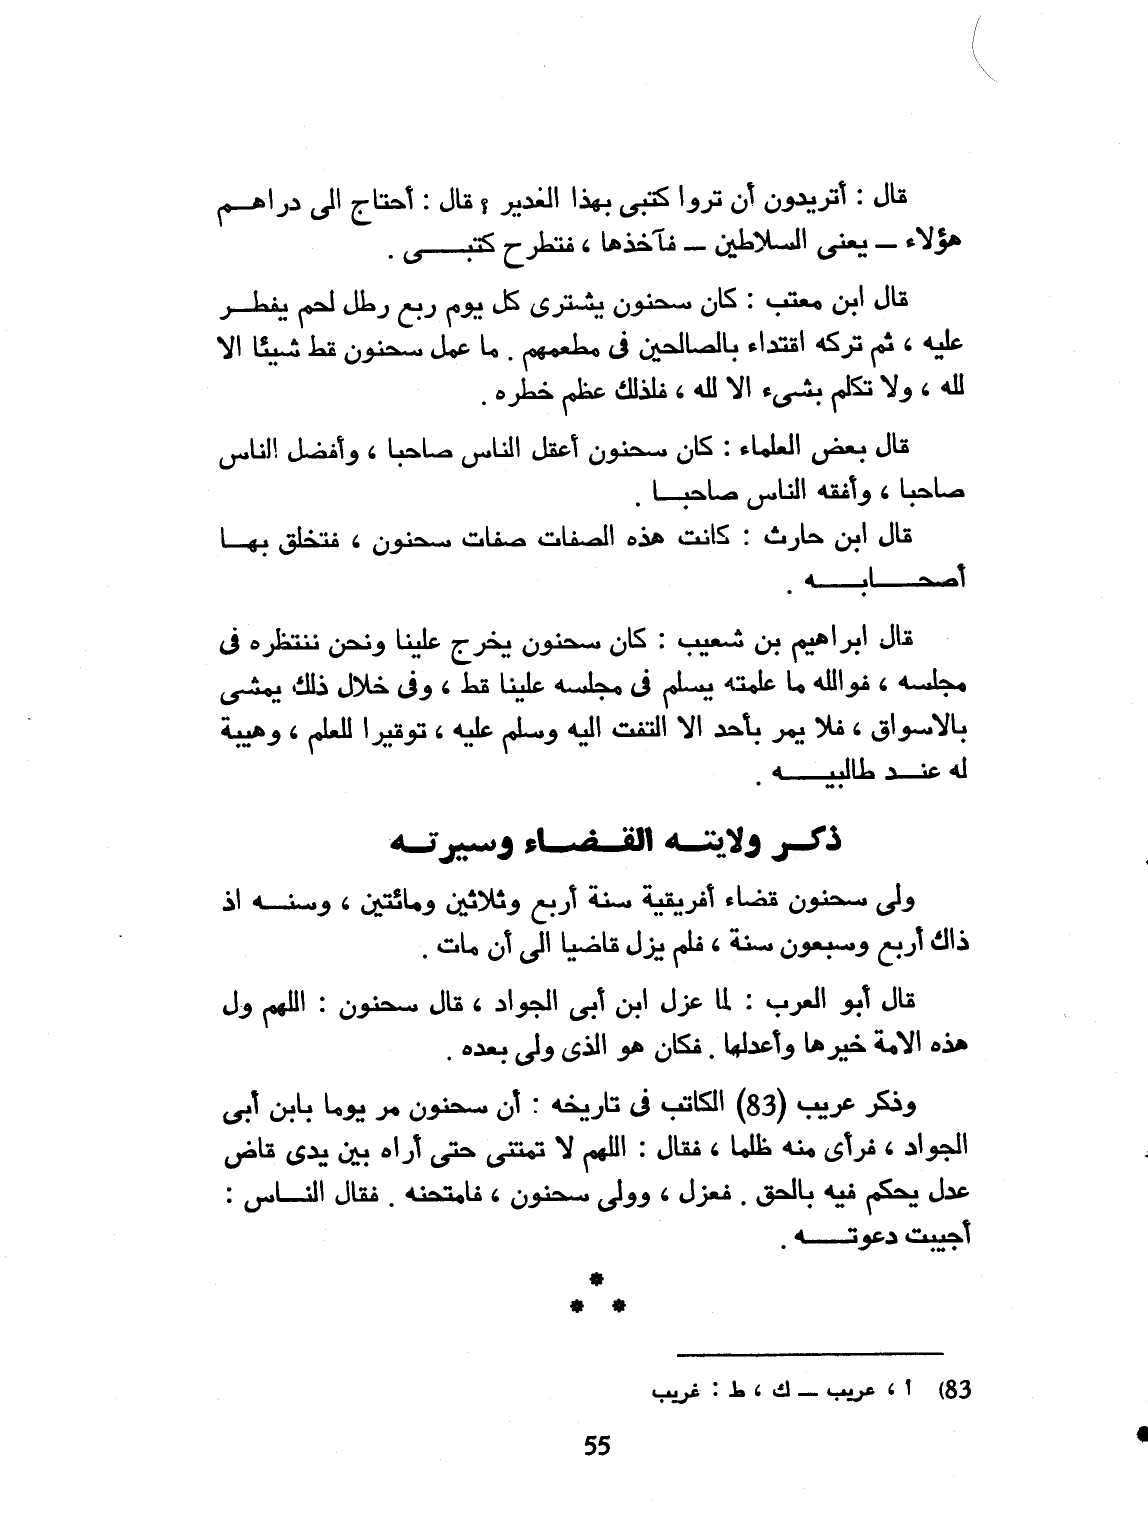 قال : أتريدون أن تروا كتبى بهذا الغدير ؟ قال : أحتاج الى دراهم
هؤلاء – يعنى السلاطين – فآخذها ، فتطرح كتبى .
قال ابن معتب : كان سحنون يشترى كل يوم ربع رطل لحم يفطر
عليه ، ثم تركه اقتداء بالصالحين فى مطعمهم . ما عمل سحنون قط شيئا الا
لله ، ولا تكلم بشىء الا لله ، فلذلك عظم خطره .
قال بعض العلماء : كان سحنون أعقل الناس صاحبا ، وأفضل الناس
صاحبا ، وأفقه الناس صاحبا .
قال ابن حارث : كانت هذه الصفات صفات سحنون ، فتخلق بها
أصحابه .
قال ابراهيم بن شعيب : كان سحنون يخرج علينا ونحن ننتظره فى
مجلسه ، فوالله ما علمته يسلم فى مجلسه علينا قط ، وفى خلال ذلك يمشى
بالاسواق ، فلا يمر بأحد الا التفت اليه وسلم عليه ، توقيرا للعلم ، وهيبة
له عند طالبيه .
ذكر ولايته القضاء وسيرته
ولى سحنون قضاء أفريقية سنة أربع وثلاثين ومائتين ، وسنه اذ
ذاك أربع وسبعون سنة ، فلم يزل قاضيا الى أن مات .
قال أبو العرب : لما عزل ابن أبى الجواد ، قال سحنون : اللهم ول
هذه الامة خيرها وأعدلها . فكان هو الذى ولى بعده .
وذكر عريب (83) الكاتب فى تاريخه : أن سحنون مر يوما بابن أبى
الجواد ، فرأى منه ظلما ، فقال : اللهم لا تمتنى حتى أراه بين يدى قاض
عدل يحكم فيه بالحق . فعزل ، وولى سحنون ، فامتحنه . فقال الناس :
أجيبت دعوته .
83) أ ، عريب – ك ، ط : غريب
55